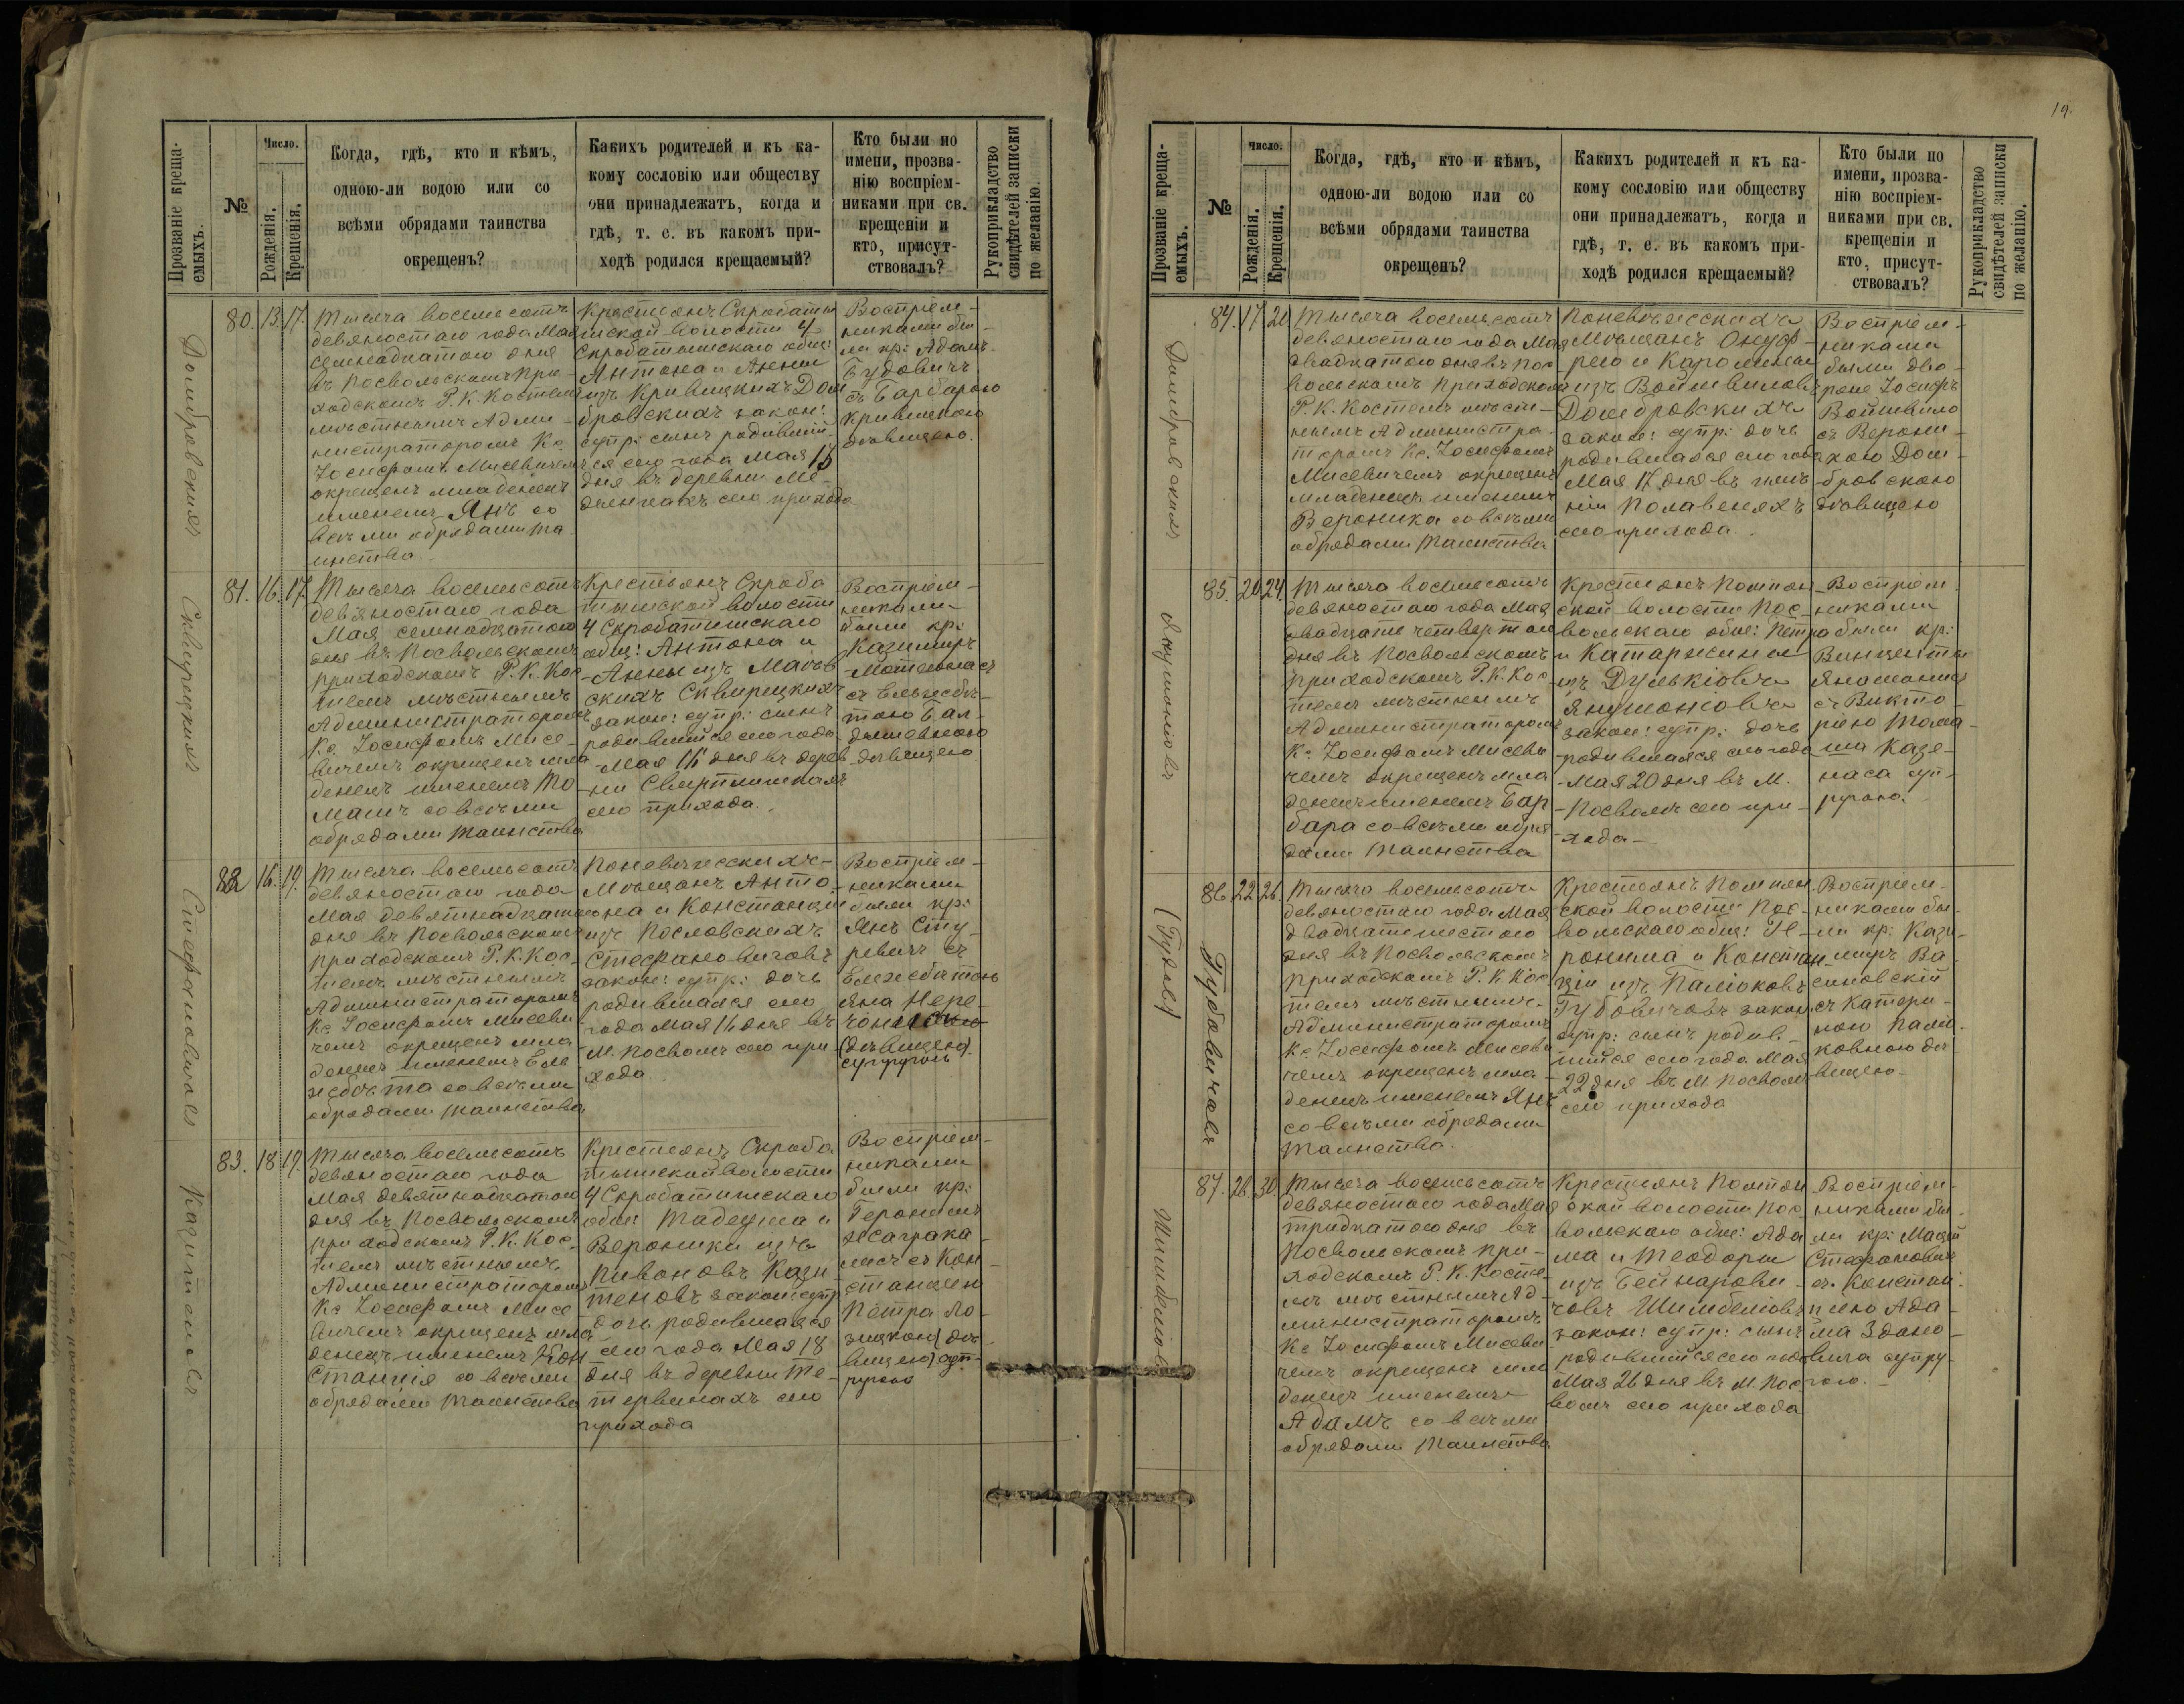 Прозваніе креща-
емыхъ.
№
Число.
Рожденія.
Крещенія.
Когда, гдѣ, кто и кѣмъ,
одною-ли водою или со
всѣми обрядами таинства
окрещенъ?
Какихъ родителей и къ ка-
кому сословію или обществу
они принадлежатъ, когда и
гдѣ, т. е. въ какомъ при-
ходѣ родился крещаемый?
Кто были по
имени, прозва-
нію воспріем-
никами при св.
крещеніи и
кто, присут-
ствовалъ?
Рукоприкладство
свидѣтелей записки
по желанію.
80. 13. 17.
Тысяча восемьсотъ
девяностаго года Мая
семнадцатого дня
въ Посвольскомъ При-
ходскомъ Р. К. Костелѣ
мѣстнымъ Адми-
нистраторомъ Кс.
Іосифомъ Мисевичемъ
окрещенъ младенецъ
именемъ Янъ со
всѣми обрядами та
инства.
Крестьянъ Скробаты
шской волости 4
Скробатышскаго общ:
Антона и Анны
изъ Кривицкихъ Дом
бровскихъ закон:
супр: сынъ родивший-
ся сего года Мая 13
дня въ деревни Ме-
сего прихода
Воспріем-
никами бы-
ли кр: Адамъ
Будовичъ
съ Барбарою
Кривицкою
дѣвицею.
Сквирецкихъ
81. 16. 17.
Тысяча восемьсотъ
девяностаго года
Мая семнадцатого
дня въ Посвольскомъ
приходскомъ Р. К. Кос
телѣ мѣстнымъ
Администраторомъ
Кс. Іосифомъ Мисе-
вичемъ окрещенъ мла
денецъ именемъ То
машъ со всѣми
обрядами таинства
Крестьянъ Скроба
тышской волости
4 Скробатышскаго
общ: Антона и
Анны изъ
скихъ Сквирецкихъ
закон: супр: сынъ
родившийся сего года
Мая 16 дня въ дерев
ни
сего прихода.
Воспріем-
никами
были кр:
Казимиръ
съ Ельжебѣ-
тою
дѣвицею
Стефановичъ
82 16. 19.
Тысяча восемьсотъ
девяностаго года
Мая девятнадцатого
дня въ Посвольскомъ
приходскомъ Р. К. Кос-
телѣ мѣстнымъ
Администраторомъ
Кс. Іосифомъ Мисеви
чемъ окрещенъ мла
денецъ именемъ Ель
жебѣта со всѣми
обрядами таинства
Поневѣжскихъ
Мѣщанъ Анто
на и Констанціи
изъ Пословскихъ
Стефановичовъ
закон: супр: дочь
родившаяся сего
года Мая 16 дня въ
М. Посволѣ сего при-
хода
Воспріем-
никами
были кр:
Янъ Сту-
ревичъ съ
Ельжебѣтою
Яна
(дѣвицею)
супругою
83. 18 19.
Тысяча восемьсотъ
девяностаго года
Мая девятнадцатого
дня въ Посвольскомъ
приходскомъ Р. К. Кос-
телѣ мѣстнымъ
Администраторомъ
Кс Іосифомъ Мисе
вичемъ окрещенъ мла
денецъ именемъ Кон
станція со всѣми
обрядами таинства
Крестьянъ Скроба
тышской волости
4 Скробатышскаго
общ: Тадеуша и
Вероники изъ
Пивоновъ Кази
теновъ закон: супр
дочь родившаяся
сего года Мая 18
дня въ деревни Те-
тервинахъ сего
прихода
Воспріем-
никами
были кр:
Геронимъ
съ Кон
станціею
Петра
(дѣ-
вицею) суп-
ругою
19.
Прозваніе креща-
емыхъ.
№
Число.
Рожденія.
Крещенія.
Когда, гдѣ, кто и кѣмъ,
одною-ли водою или со
всѣми обрядами таинства
окрещенъ?
Какихъ родителей и къ ка-
кому сословію или обществу
они принадлежатъ, когда и
гдѣ, т. е. въ какомъ при-
ходѣ родился крещаемый?
Кто были по
имени, прозва-
нію воспріем-
никами при св.
крещеніи и
кто, присут-
ствовалъ?
Рукоприкладство
свидѣтелей записки
по желанію.
84. 17 20
Тысяча восемьсотъ
девяностаго года Мая
двадцатого дня въ Пос
вольскомъ приходскомъ
Р. К. Костелѣ мѣст-
нымъ Администра-
торомъ Кс. Іосифомъ
Мисевичемъ окрещенъ
младенецъ именемъ
Вероника со всѣми
обрядами таинства
Поневѣжскихъ
Мѣщанъ Онуф-
рія и Каролины
изъ Войшвиловъ
Домбровскихъ
закон: супр: дочь
родившаяся сего года
Мая 17 дня въ имѣ-
ніи
сего прихода.
Воспріем-
никами
были дво-
ряне Іосифъ
Войшвило
съ Верони-
кою Дом-
бровскою
дѣвицею
85. 20 24.
Тысяча восемьсотъ
девяностаго года Мая
двадцать четвертаго
дня въ Посвольскомъ
приходскомъ Р. К. Кос-
телѣ мѣстнымъ
Администраторомъ
Кс. Іосифомъ Мисеви
чемъ окрещенъ мла
денецъ именемъ Бар
бара со всѣми обря
дами таинства
Крестьянъ Помпян
ской волости Пос-
вольскаго общ: Петра
и Катаржины
изъ Дулькіовъ
Якушоніовъ
закон: супр: дочь
родившаяся сего года
Мая 20 дня въ М.
Посволѣ сего при-
хода
Воспріем
никами
были кр:
Винцентъ
съ Викто-
ріею Тома
ша Казе-
наса суп-
ругою.
Губовичовъ
86 22 26.
Тысяча восемьсотъ
девяностаго года Мая
двадцать шестого
дня въ Посвольскомъ
приходскомъ Р. К. Кос
телѣ мѣстнымъ
Администраторомъ
Кс. Іосифомъ Мисеви
чемъ окрещенъ мла-
денецъ именемъ Янъ
со всѣми обрядами
таинства.
Крестьянъ Помпян
ской волости Пос-
вольскаго общ: Ге-
ронима и Констан
ціи изъ Паліоковъ
Губовичовъ закон
супр: сынъ родив-
шійся сего года Мая
22 дня въ М. Посволѣ
сего прихода
Воспріем-
никами бы-
ли кр: Кази-
миръ Ва-
синовскій
съ Катери-
ною Паліо-
ковною дѣ
вицею
87. 26. 30.
Тысяча восемьсотъ
девяностаго года Мая
тридцатого дня въ
Посвольскомъ при-
ходскомъ Р. К. Косте
лѣ мѣстнымъ Ад-
министраторомъ
Кс Іосифомъ Мисеви
чемъ окрещенъ мла
денецъ именемъ
Адамъ со всѣми
обрядами таинства
Крестьянъ Помпян
ской волости Пос
вольскаго общ: Ада
ма и Теодоры
изъ Бейнарови-
човъ Шимбеліовъ
закон: супр: сынъ
родившийся сего года
Мая 26 дня въ М. Пос
волѣ сего прихода
Воспріем-
никами бы-
ли кр: Мацѣй
Стефановичъ
съ Констан-
ціею Ада-
ма Здано-
вича супру-
гою.